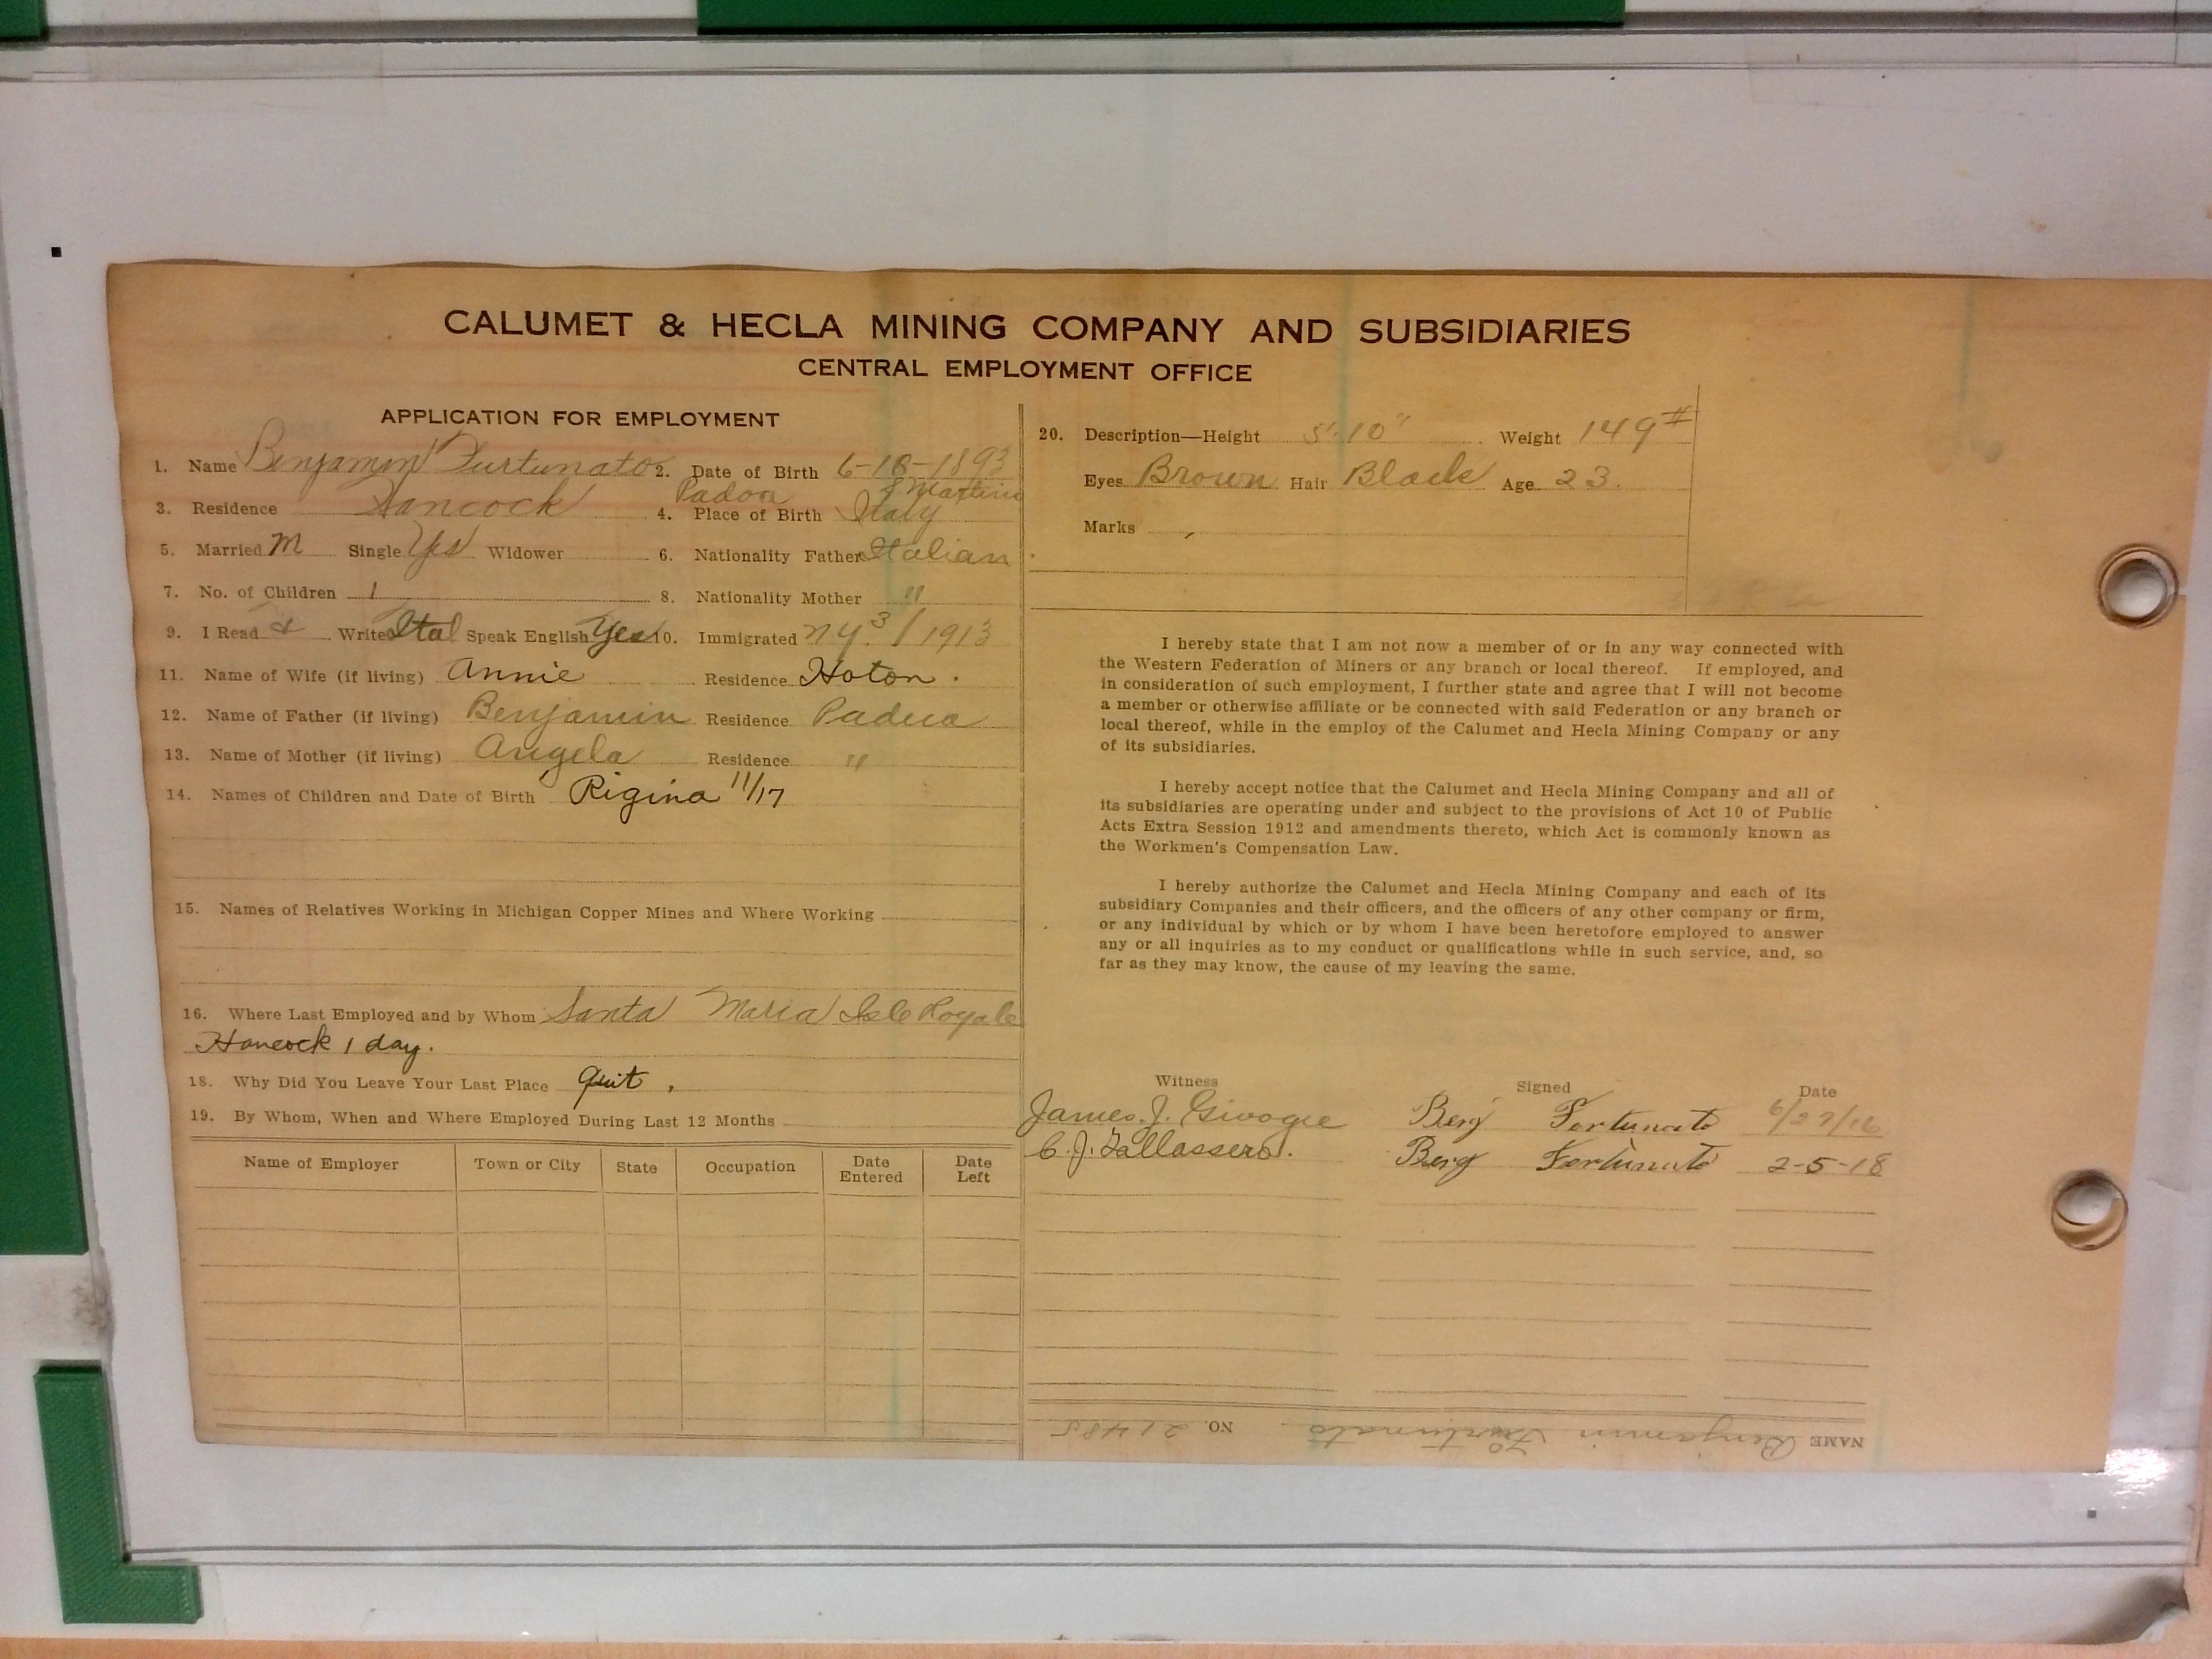 CALUMET & HECLA MINING COMPANY AND SUBSIDIARIES
CENTRAL EMPLOYMENT OFFICE
APPLICATION FOR EMPLOYMENT
1. Name Benjamin Furtunato 2. Date of Birth 6-18-1893
Padoa S Martino
3. Residence Hancock 4. Place of Birth Italy
5. Married M Single Yes Widower 6. Nationality Father Italian
7. No. of Children 1 8. Nationality Mother "
9. I Read & Write Ital Speak English Yes 10. Immigrated NY. 3/1913
11. Name of Wife (if living) Annie Residence Hoton.
12. Name of Father (if living) Benjamin Residence Padua
13. Name of Mother (if living) Angela Residence "
14. Names of Children and Date of Birth Rigina 11/17
15. Names of Relatives Working in Michigan Copper Mines and Where Working
16. Where Last Employed and by Whom Santa Maria Isle Royale
Hancock 1 day.
18. Why Did You Leave Your Last Place Quit,
19. By Whom, When and Where Employed During Last 12 Months
Name of Employer Town or City State Occupation Date Entered Date Left
20. Description—Height 5'-10" Weight 149#
Eyes Brown Hair Black Age 23.
Marks
I hereby state that I am not now a member of or in any way connected with
the Western Federation of Miners or any branch or local thereof. If employed, and
in consideration of such employment, I further state and agree that I will not become
a member or otherwise affiliate or be connected with said Federation or any branch or
local thereof, while in the employ of the Calumet and Hecla Mining Company or any
of its subsidiaries.
I hereby accept notice that the Calumet and Hecla Mining Company and all of
its subsidiaries are operating under and subject to the provisions of Act 10 of Public
Acts Extra Session 1912 and amendments thereto, which Act is commonly known as
the Workmen's Compensation Law.
I hereby authorize the Calumet and Hecla Mining Company and each of its
subsidiary Companies and their officers, and the officers of any other company or firm,
or any individual by which or by whom I have been heretofore employed to answer
any or all inquiries as to my conduct or qualifications while in such service, and, so
far as they may know, the cause of my leaving the same.
Witness Signed Date
James. J. Benj Fortunato 6/27/16
C. J. Benj Fortunato 2-5-18
NAME Benjamin Furtunato NO. 21485